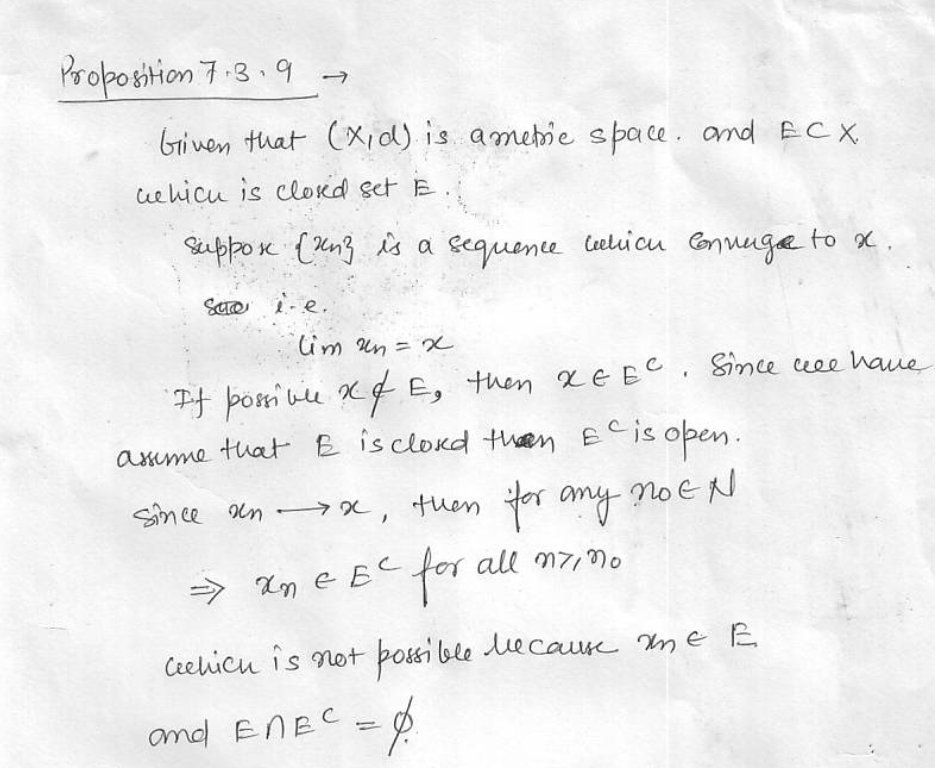 Proposition 7.3.9 →
Given that (X,d) is a metric space. and E ⊂ X
which is closed set E.
Suppose {xn} is a sequence which converge to x.
i.e.
lim xn = x
If possible x ∉ E, then x ∈ E^c. Since we have
assume that E is closed then E^c is open.
Since xn → x, then for any n0 ∈ N
⇒ xn ∈ E^c for all n ≥ n0
which is not possible because xn ∈ E
and E ∩ E^c = φ.